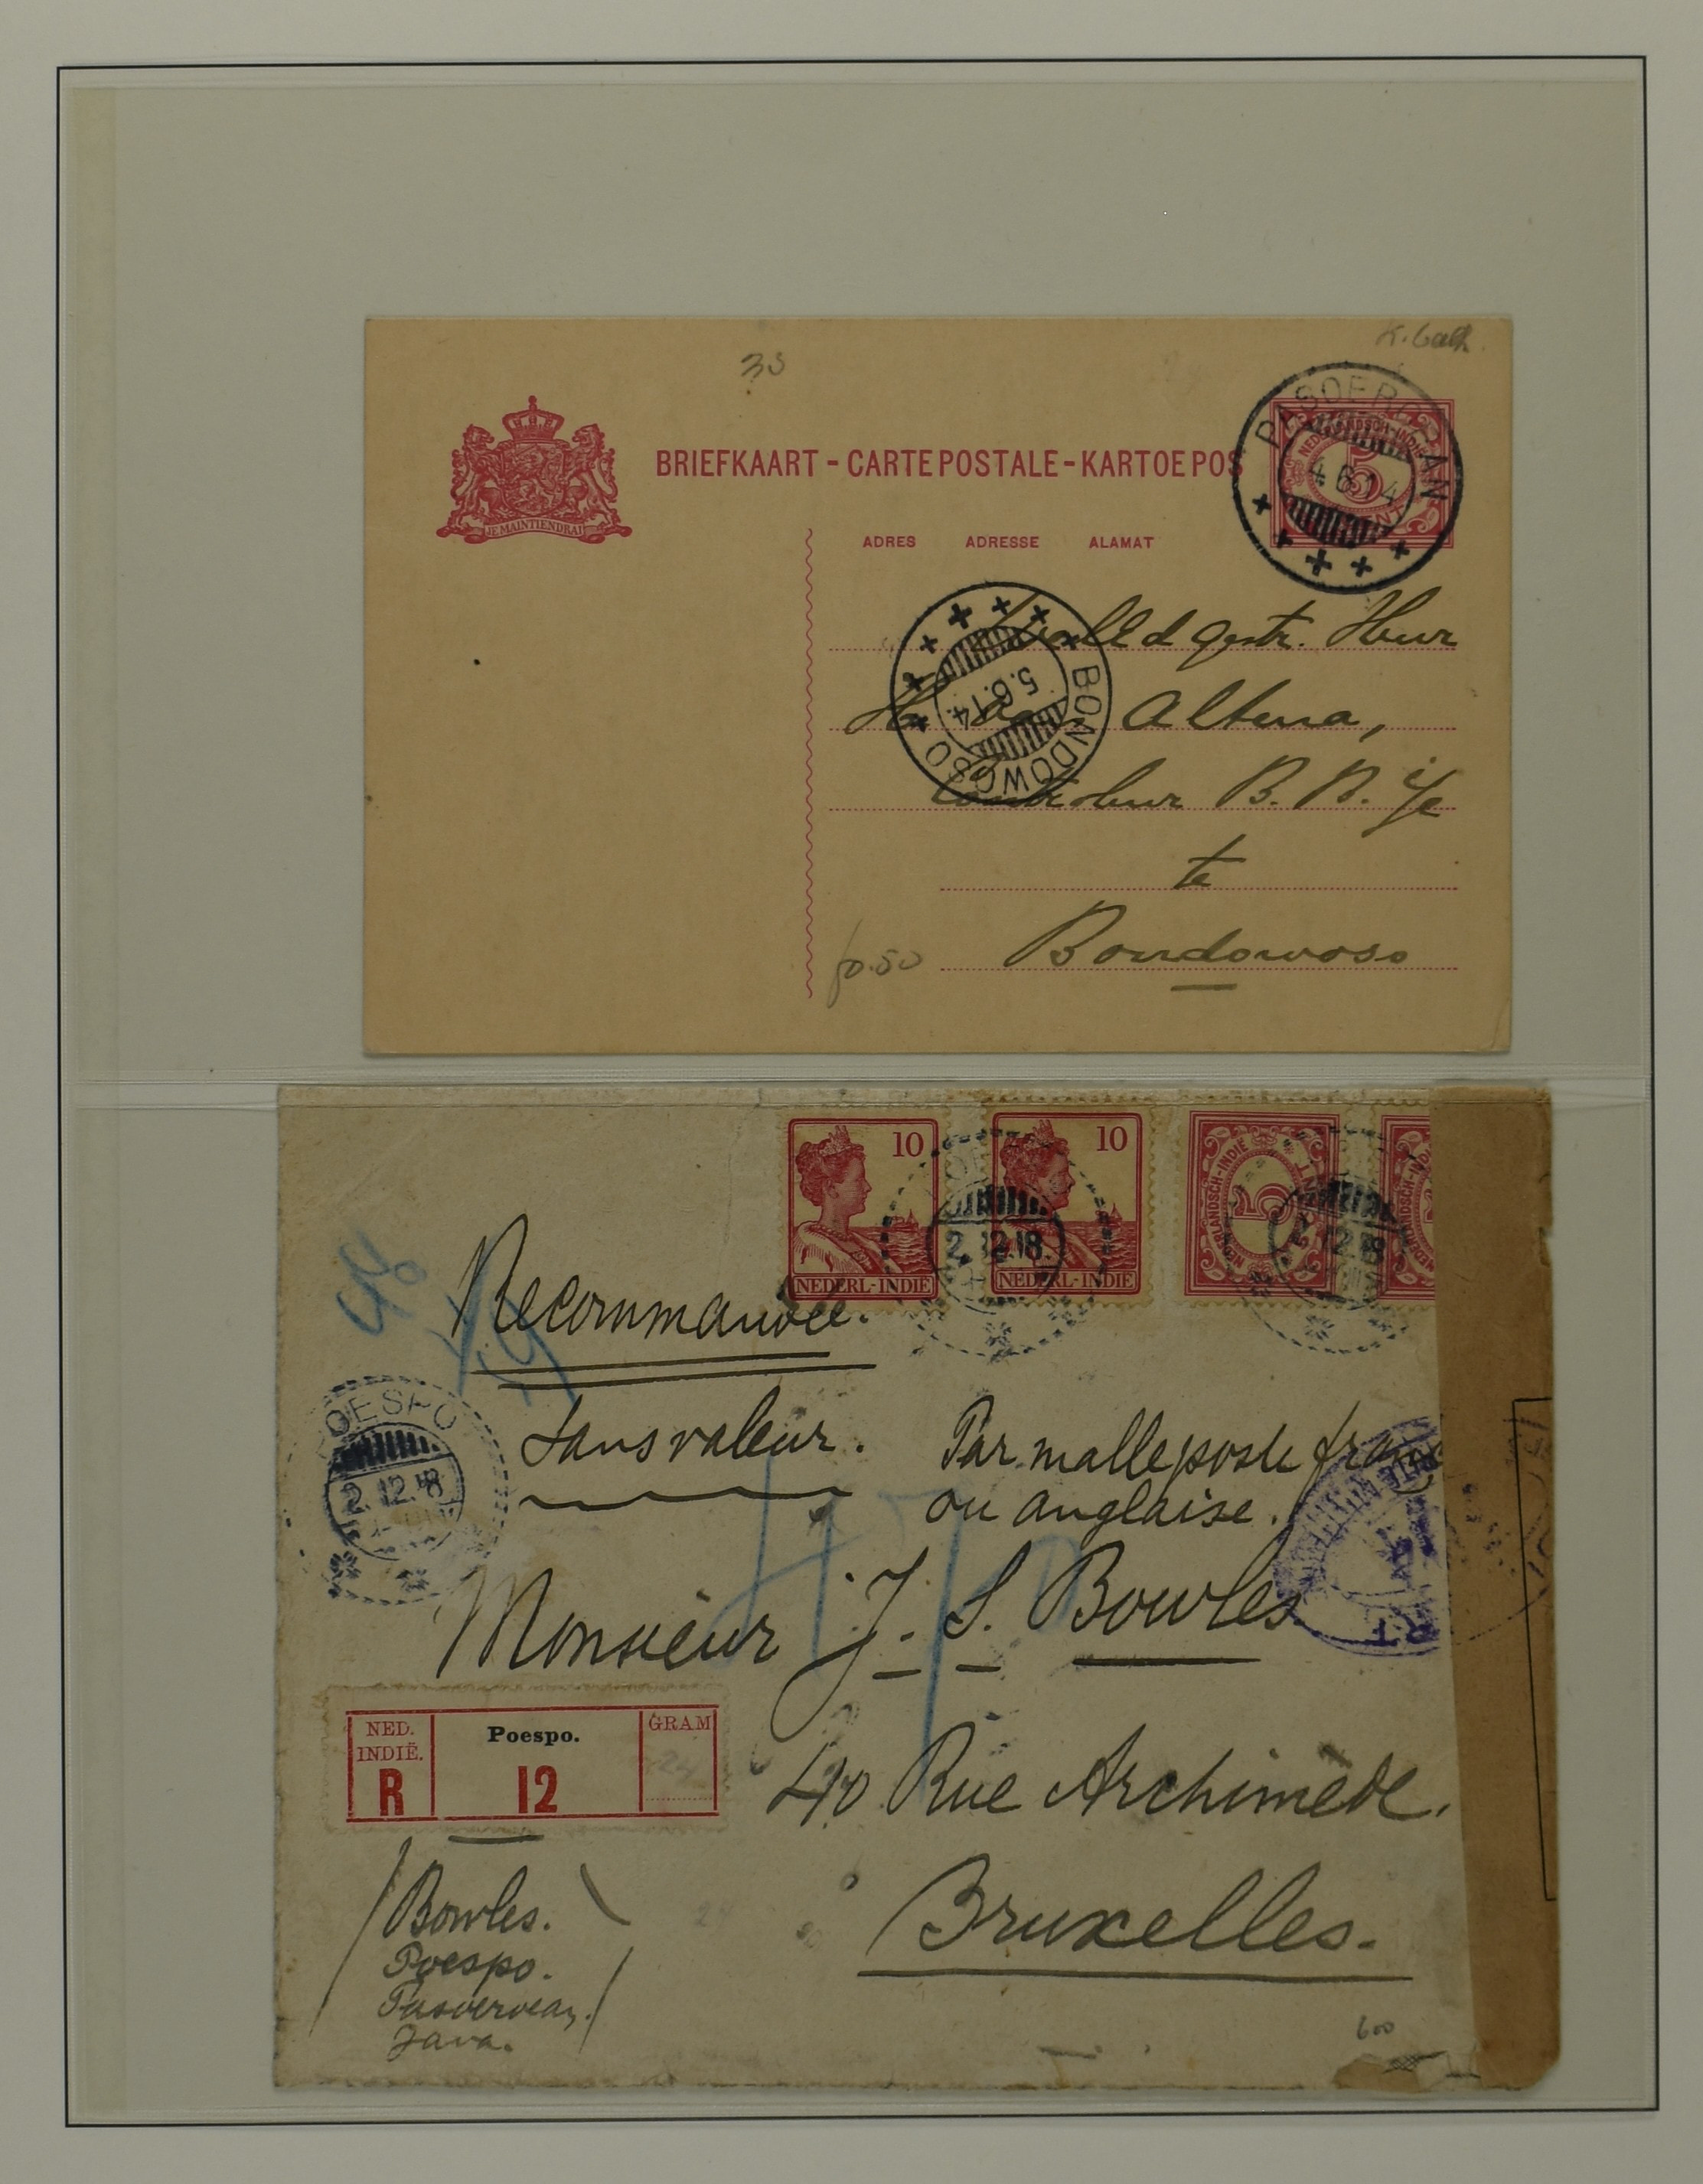 30
JE MAINTIENDRAI
BRIEFKAART - CARTE POSTALE - KARTOE POS
ADRES ADRESSE ALAMAT
NEDERLANDSCH-INDIE
5
CENT
PASOEROEAN
4.6.14
BONDOWOSO
5.6.14.
Heer
H. Altena,
Controleur B. B. 
te
Bondowoso
f0.50
10
NEDERL-INDIE
10
NEDERL-INDIE
NEDERLANDSCH-INDIE
5
CENT
NEDERLANDSCH-INDIE
2.12.18
2.12.18
Recommandée.
Sans valeur.
Par malle poste franç
ou anglaise.
POESPO
2.12.18
Monsieur J. S. Bowles
NED. INDIË. R
Poespo.
12
GRAM
40 Rue Archimède.
Bruxelles.
Bowles.
Poespo.
Pasoeroean.
Java.
600